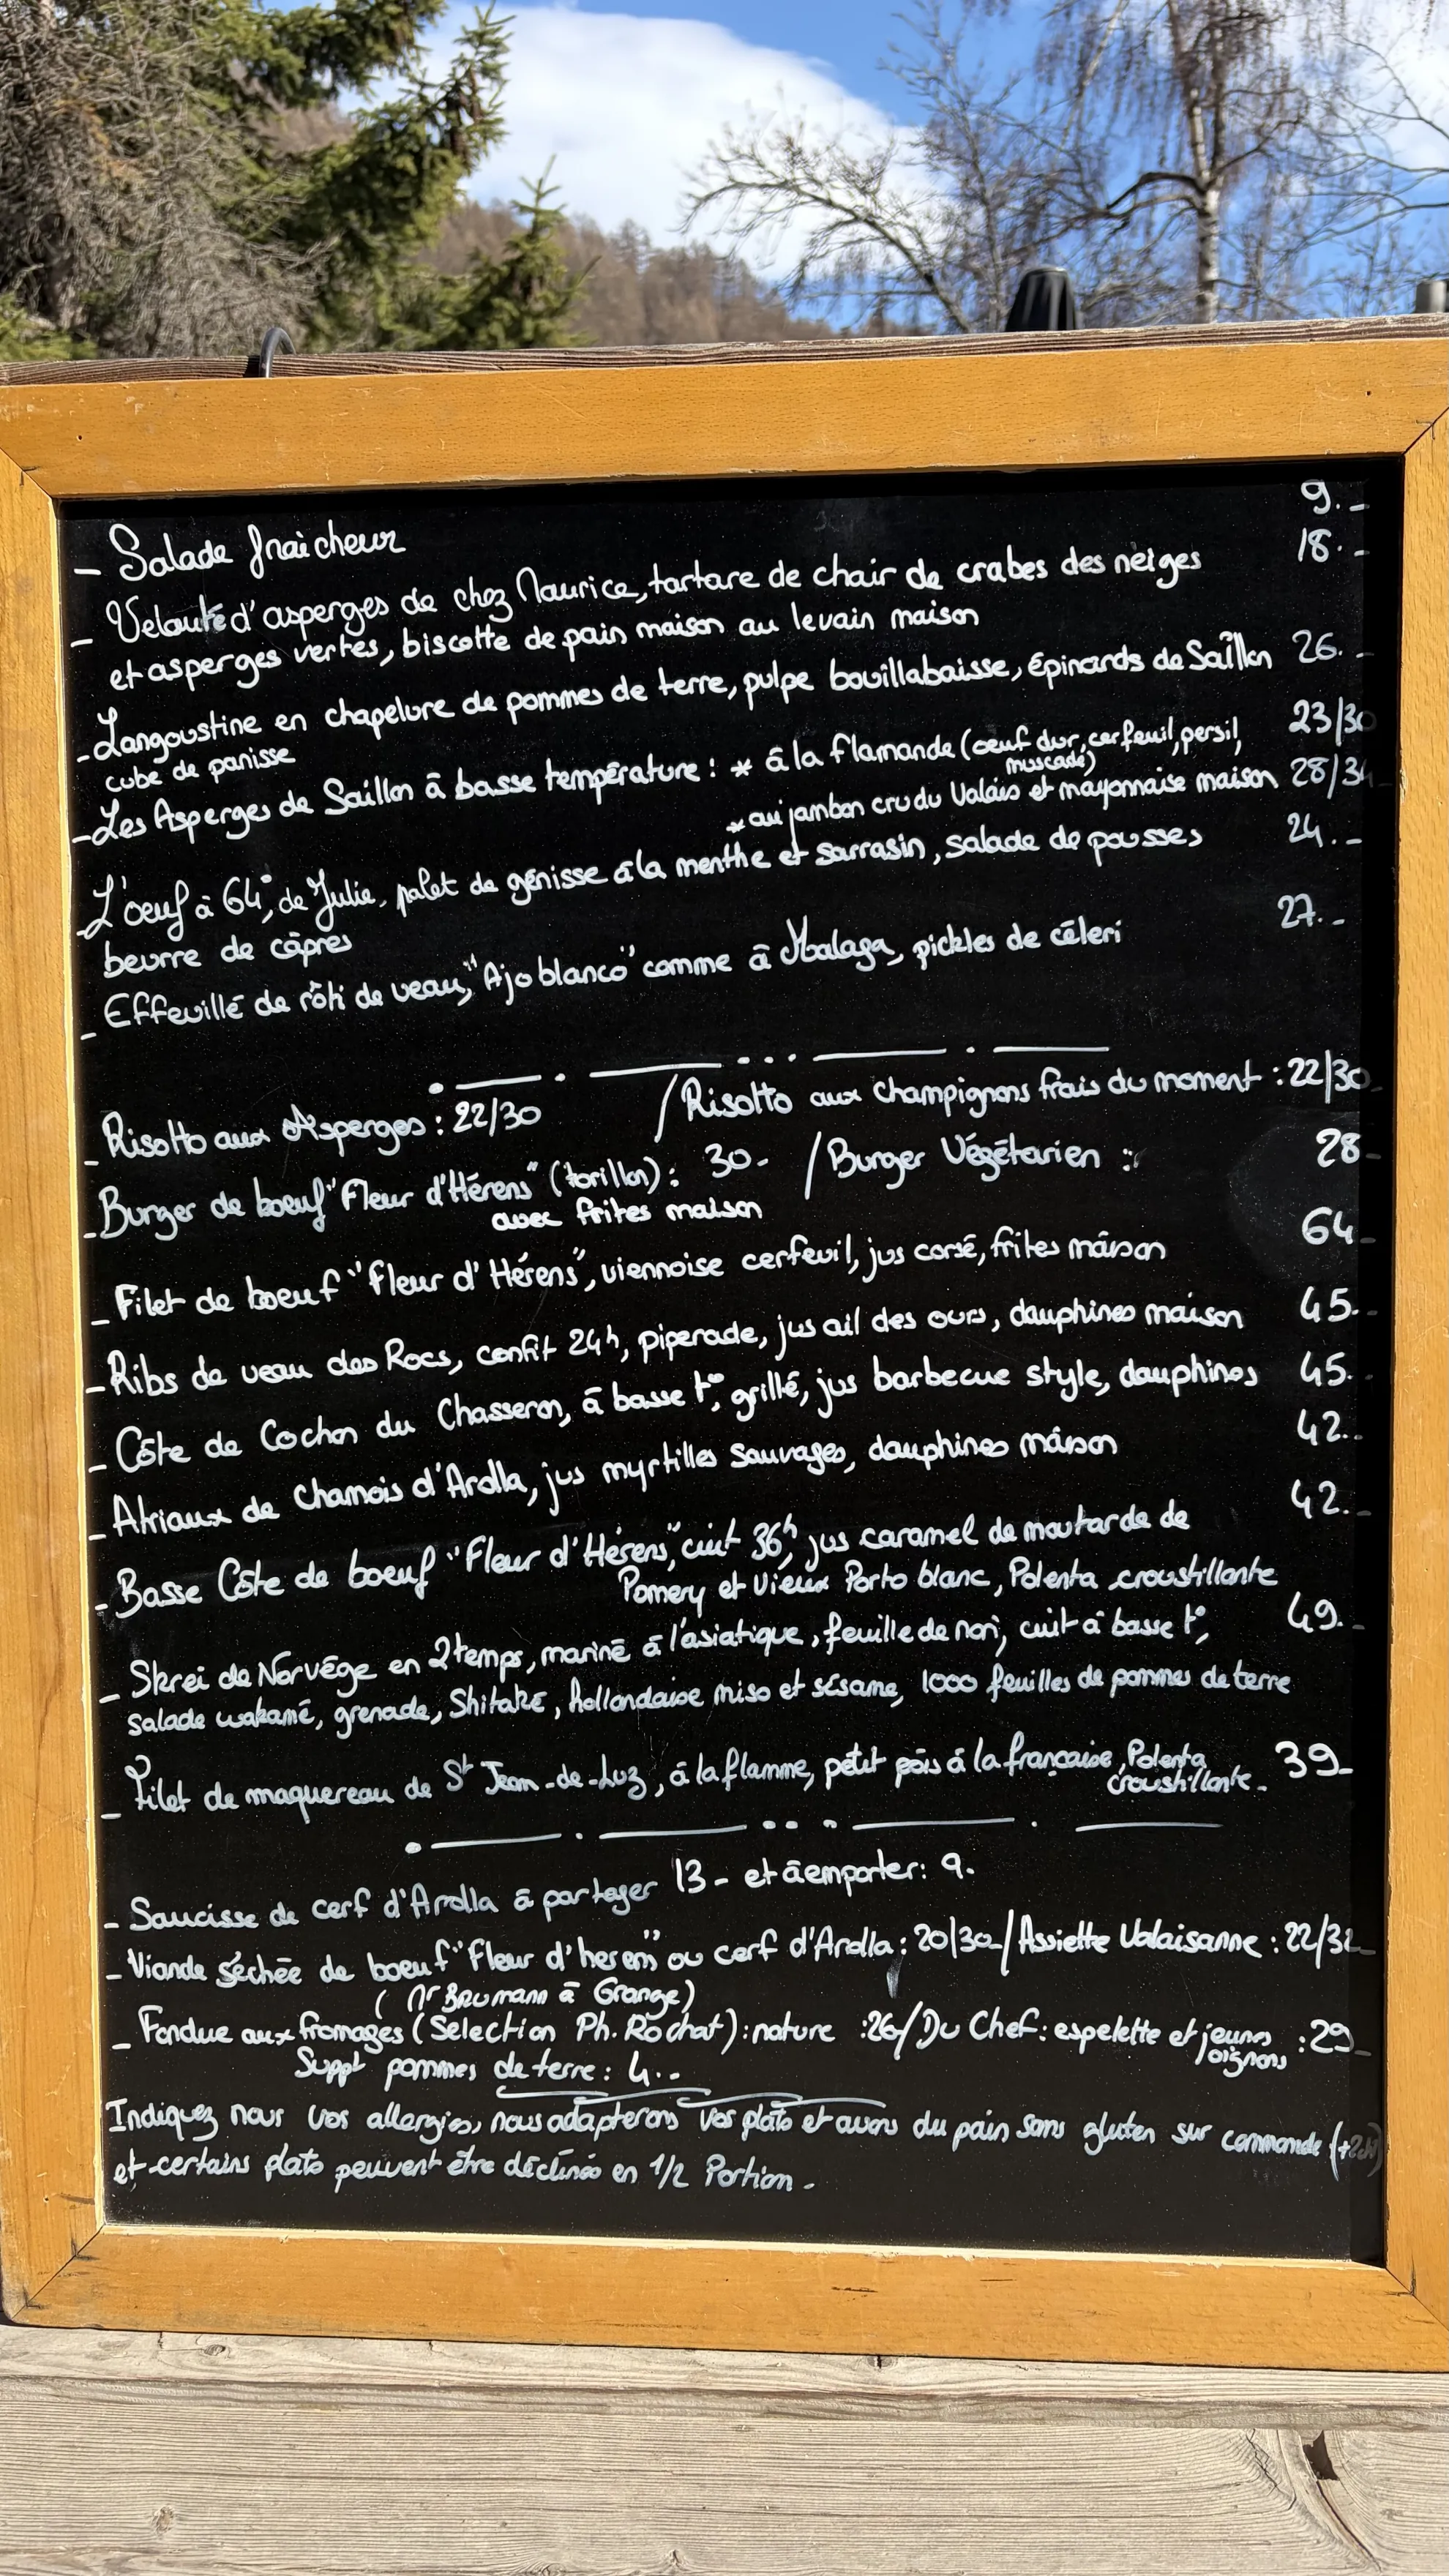 - Salade fraîcheur 9.-
- Velouté d'asperges de chez Maurice, tartare de chair de crabes des neiges 18.-
et asperges vertes, biscotte de pain maison au levain maison
- Langoustine en chapelure de pommes de terre, pulpe bouillabaisse, épinards de Saillon 26.-
cube de panisse
- Les Asperges de Saillon à basse température : * à la flamande (oeuf dur, cerfeuil, persil, 23/30
muscade)
* au jambon cru du Valais et mayonnaise maison 28/34
- L'oeuf à 64°, de Julie, palet de génisse à la menthe et sarrasin, salade de pousses 24.-
beurre de câpres
- Effeuillé de rôti de veau, "Ajo blanco" comme à Malaga, pickles de céleri 27.-
- Risotto aux Asperges : 22/30 / Risotto aux champignons frais du moment : 22/30-
- Burger de boeuf "Fleur d'Hérens" (torillon) : 30- / Burger Végétarien : 28-
avec frites maison
- Filet de boeuf "Fleur d'Hérens", viennoise cerfeuil, jus corsé, frites maison 64-
- Ribs de veau des Rocs, confit 24h, piperade, jus ail des ours, dauphines maison 45.-
- Côte de Cochon du Chasseron, à basse t°, grillé, jus barbecue style, dauphines 45.-
- Atriaux de Chamois d'Arolla, jus myrtilles sauvages, dauphines maison 42.-
- Basse Côte de boeuf "Fleur d'Hérens", cuit 36h, jus caramel de moutarde de 42.-
Pomery et Vieux Porto blanc, Polenta croustillante
- Skrei de Norvège en 2 temps, mariné à l'asiatique, feuille de nori, cuit à basse t°, 49.-
salade wakamé, grenade, Shitaké, hollandaise miso et sésame, 1000 feuilles de pommes de terre
- Filet de maquereau de St Jean-de-Luz, à la flamme, petit pois à la française, Polenta 39-
croustillante-
- Saucisse de cerf d'Arolla à partager 13- et à emporter: 9.
- Viande séchée de boeuf "Fleur d'herens" ou cerf d'Arolla : 20/30-/Assiette Valaisanne : 22/32-
(Mr Brumann à Grange)
- Fondue aux fromages (Selection Ph. Rochat) : nature :26/Du Chef: espelette et jeunes :29-
oignons
Suppt pommes de terre : 4.-
Indiquez nous vos allergies, nous adapterons vos plats et avons du pain sans gluten sur commande (+2chf)
et certains plats peuvent être déclinés en 1/2 Portion.